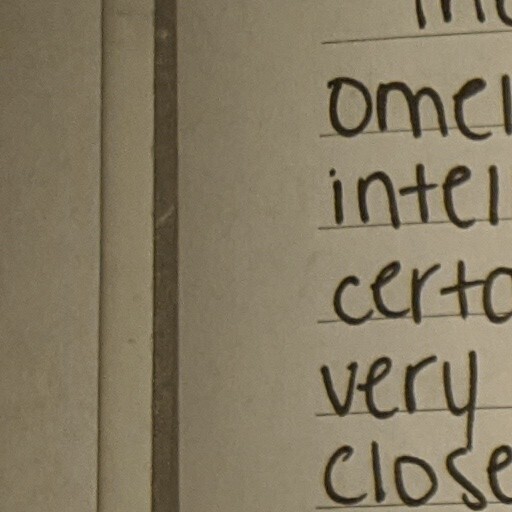 omel
intel
certa
very
close